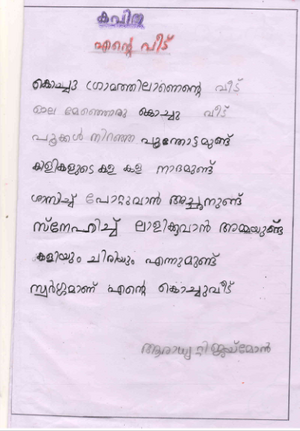 കവിത
എന്റെ വീട്
കൊച്ചു ഗ്രാമത്തിലാണെന്റെ വീട്
ഓല മേഞ്ഞൊരു കൊച്ചു വീട്
പൂക്കൾ നിറഞ്ഞ പൂന്തോട്ടമുണ്ട്
കിളികളുടെ കള കള നാദമുണ്ട്
ശാസിച്ച് പോറ്റുവാൻ അച്ഛനുണ്ട്
സ്നേഹിച്ച് ലാളിക്കുവാൻ അമ്മയുണ്ട്
കളിയും ചിരിയും എന്നുമുണ്ട്
സ്വർഗ്ഗമാണ് എന്റെ കൊച്ചുവീട്
ആരാധ്യ